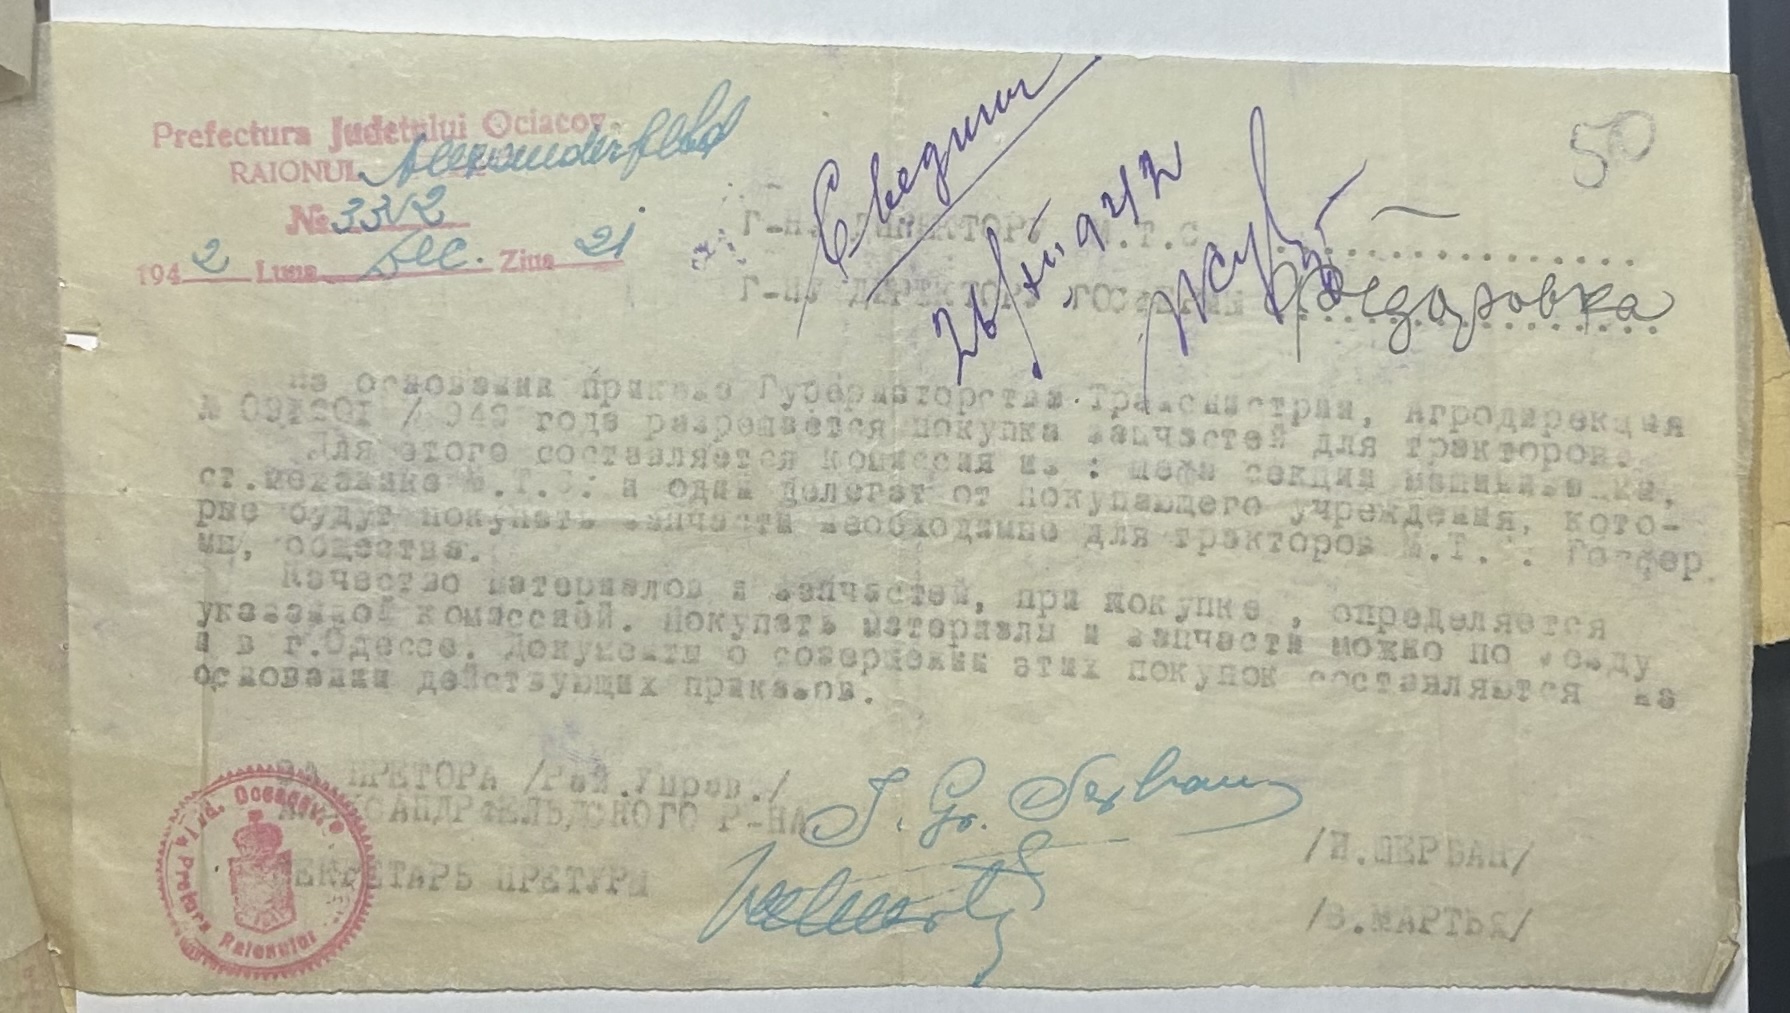 Prefectura Județului Ociacov
RAIONUL Alexanderfeld
№ 3312
1942 Luna Dec. Ziua 21
50
Г-НУ ДИРЕКТОРУ М.Т.С. ..............
Г-НУ ДИРЕКТОРУ ГОСФЕРМЫ Федоровка
На основании приказа Губернаторства Транснистрии, Агродирекция
№ /942 года разрешается покупка запчастей для тракторов.
Для этого составляется комиссия из : шефа секции механизации,
ст.механика М.Т.С. и один делегат от покупающего учреждения, кото-
рые будут покупать запчасти необходимые для тракторов М.Т.С. Госфер
мы, общества.
Качество материалов и запчастей, при покупке , определяется
указанной комиссией. Покупать материалы и запчасти можно по уезду
и в г.Одессе. Документы о совершении этих покупок составляются на
основании действующих приказов.
ЗА ПРЕТОРА /Рай.Управ./
АЛЕКСАНДРФЕЛЬДСКОГО Р-НА I. Gr. Serban /И.ШЕРБАН/
СЕКРЕТАРЬ ПРЕТУРЫ /В.МАРТЬЯ/
Pretura Raionului